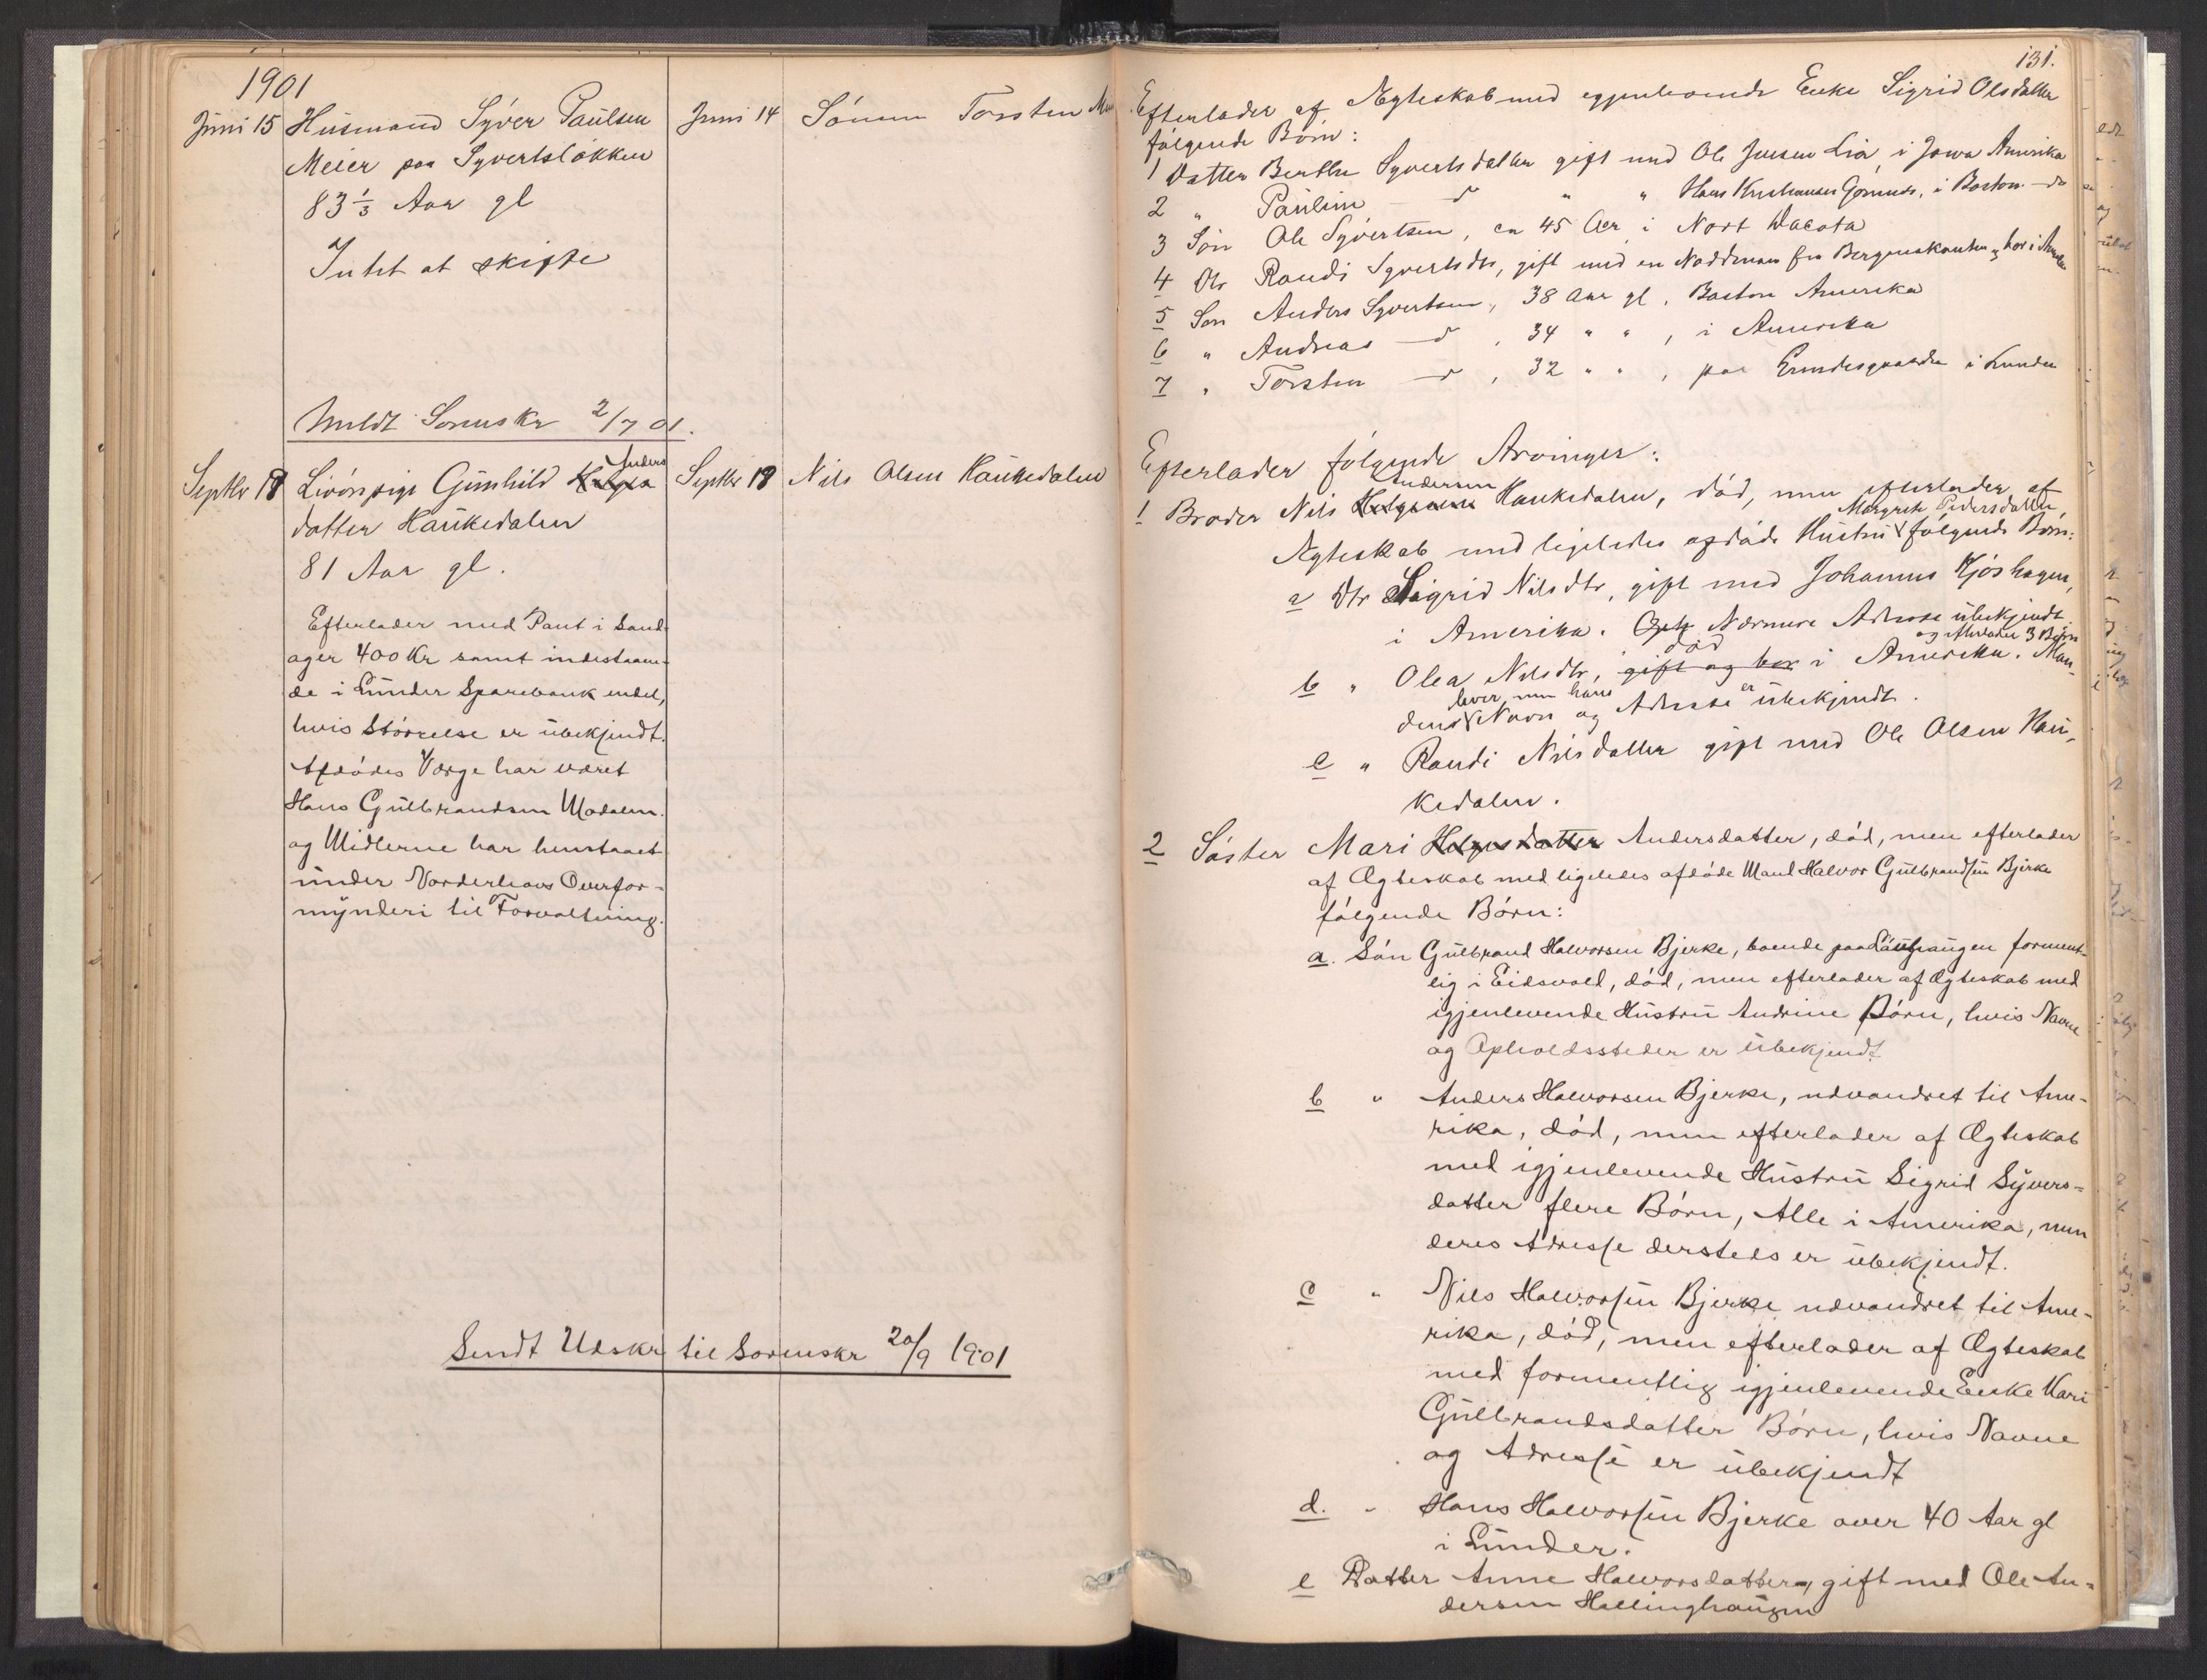 1901
Juni 15 Husmand Syver Paulsen Juni 14 Sønnen Torsten
Meier paa Syvertsløkken
83 1/3 Aar gl
Intet at skifte
Meldt Sorenskr 2/7 01.
Septbr 18 Livörspige Gunhild Anders Septbr 18 Nils Olsen Haukedalen
datter Haukedalen
81 Aar gl.
Efterlader med Pant i Sand-
ager 400 Kr samt indestaaen-
de i Lunder Sparebank endel,
hvis Størrelse er übekjendt.
Afdødes Værge har været
Hans Gülbrandsen Modalen
og Midlerne har henstaaet
ünder Norderhovs Overfor-
mynderi til Forvaltning.
Sendt Udskr til Sorenskr 20/9 1901
131.
Efterlader af Ægteskab med igjenlevende Enke Sigrid Olsdatter
følgende Børn:
1 Datter Berthe Syvertsdatter gift med Ole Jensen Lia, i Jowa Amerika
2 " Pauline — d " " Hans Kristiansen, i Boston — do
3 Søn Ole Syvertsen, ca 45 Aar i Nort Dacota
4 Dtr Randi Syvertsdtr, gift med en Noddman fra Bergenskanten, bor i Amerika
5 Søn Anders Syvertsen, 38 Aar gl, Boston Amerika
6 " Andreas — d , 34 " " , i Amerika
7 " Torsten — d , 32 " " , paa i Lunder
Efterlader følgende Arvinger:
1 Broder Nils Andersen Haukedalen, død, men efterlader af
Ægteskab med ligeledes afdøde Hustru Margrete Pedersdatter, følgende Børn:
a Dtr Sigrid Nilsdtr, gift med Johannes Kjøshagen,
i Amerika. Nærmere Adresse übekjendt.
b " Olea Nilsdtr, død gift og bor i Amerika. og efterlader 3 Børn Man-
dens lever, men hans Navn og Adresse er übekjendt.
c " Randi Nilsdatter gift med Ole Olsen Hau-
kedalen.
2 Søster Mari Helgesdatter Andersdatter, død, men efterlader
af Ægteskab med ligeledes afdøde Mand Halvor Gülbrandsen Bjerke
følgende Børn:
a. Søn Gülbrand Halvorsen Bjerke, boende paa forment-
lig i Eidsvold, død, men efterlader af Ægteskab med
igjenlevende Hüstrü Andrine Børn, hvis Navne
og Opholdssteder er übekjendt
b " Anders Halvorsen Bjerke, udvandret til Ame-
rika, død, men efterlader af Ægteskab
med igjenlevende Hüstrü Sigrid Syvers-
datter flere Børn, Alle i Amerika, men
deres Adresse dersteds er übekjendt.
c " Nils Halvorsen Bjerke udvandret til Ame-
rika, død, men efterlader af Ægteskab
med formentlig igjenlevende Enke Kari
Gülbrandsdatter Børn, hvis Navne
og Adresse er übekjendt
d. " Hans Halvorsen Bjerke over 40 Aar gl
i Lünder.
e Datter Anne Halvorsdatter, gift med Ole An-
dersen Hallinghaugen